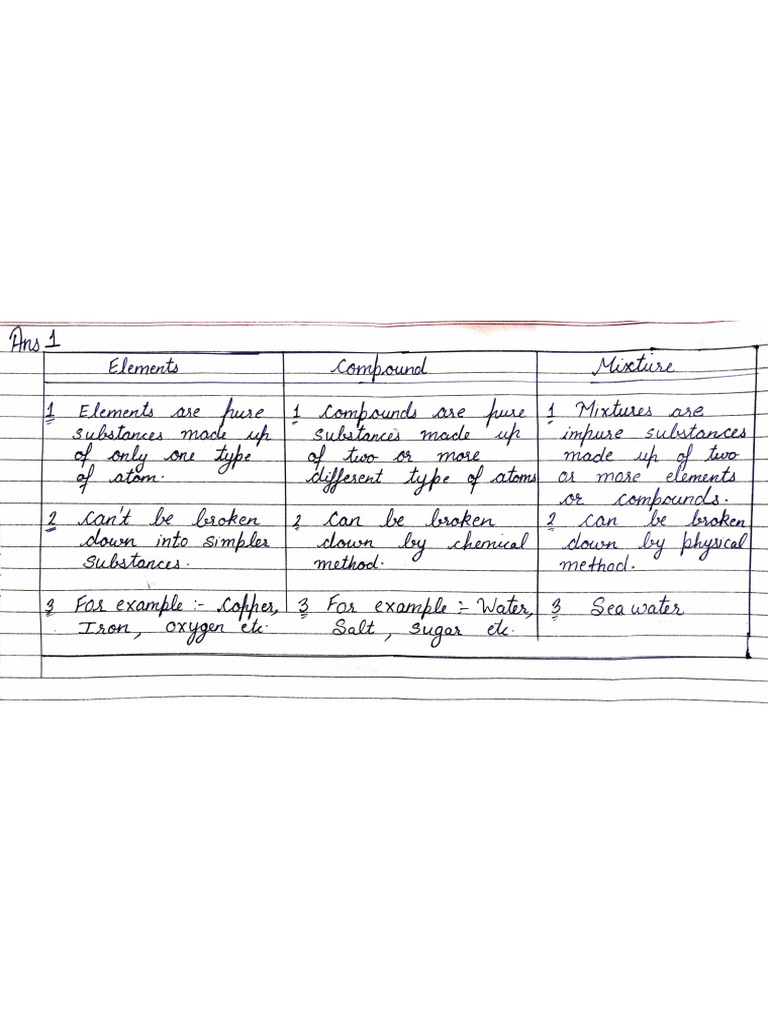 Ans 1
Elements
Compound
Mixture
1 Elements are pure
substances made up
of only one type
of atom.
1 Compounds are pure
substances made up
of two or more
different type of atoms
1 Mixtures are
impure substances
made up of two
or more elements
or compounds.
2 Can't be broken
down into simpler
substances.
2 Can be broken
down by chemical
method.
2 Can be broken
down by physical
method.
3 For example :- Copper,
Iron, Oxygen etc.
3 For example :- Water,
Salt, Sugar etc.
3 Sea water